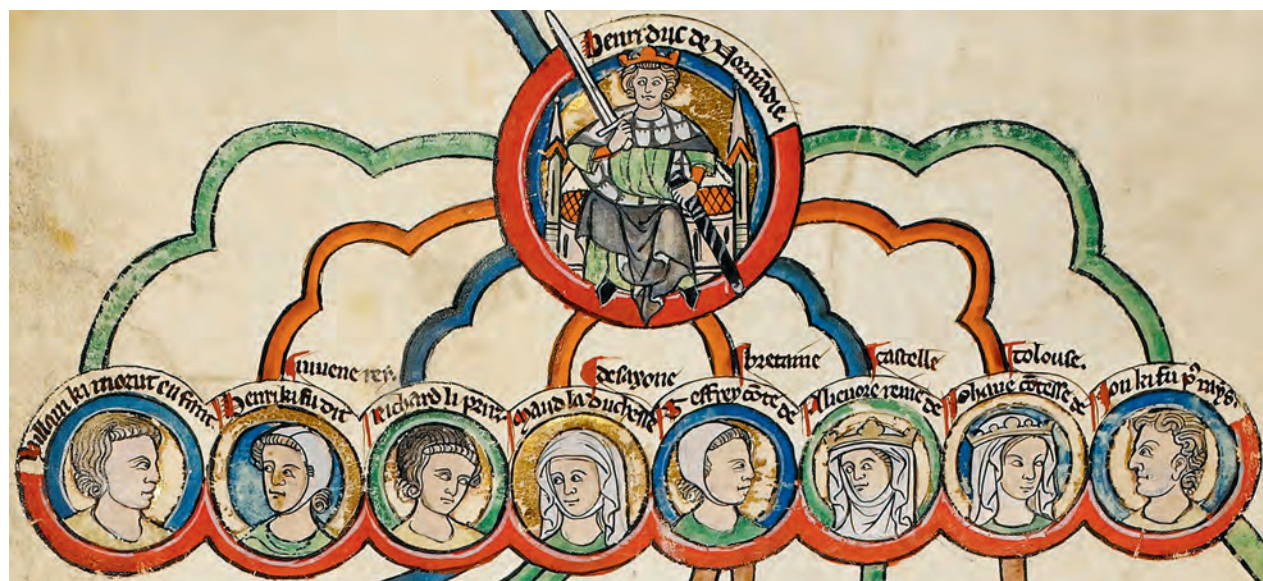 Henri duc de Normãdie.
Willam ki morut enfant
Henri ki fu dit
iuuene rei.
Richard li
Maud la duchesse
de saxone
Geffrey cõte de
bretaine
Alienore reine de
castelle
Iohane cõtesse de
tolouse.
ki fu rays